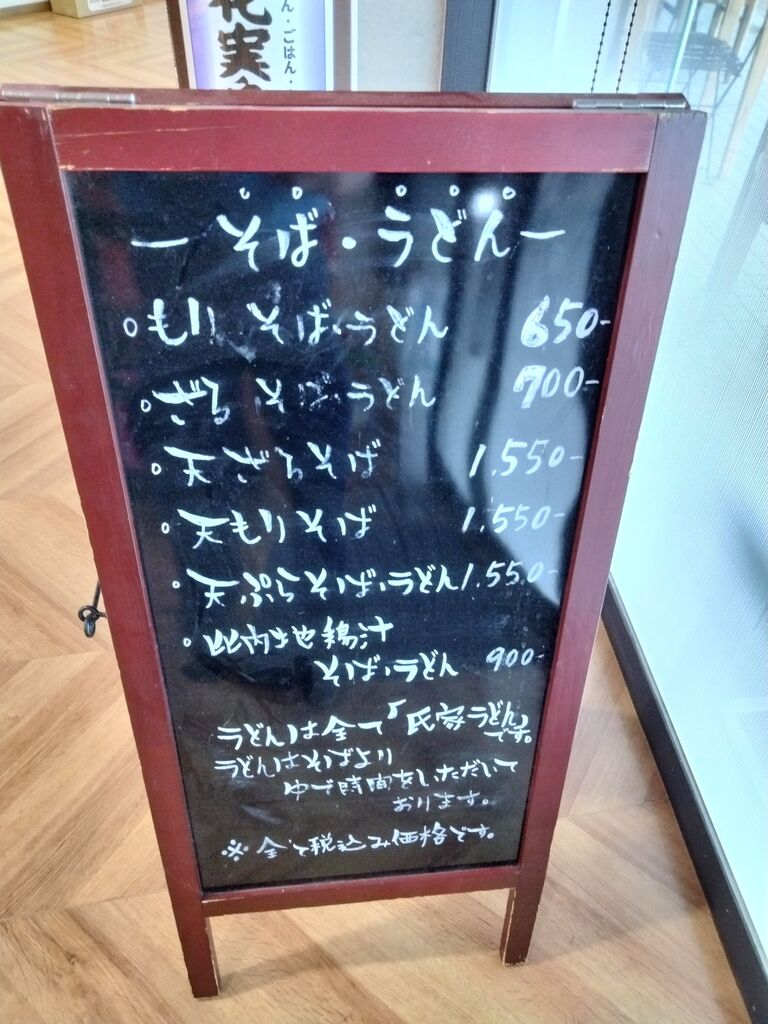 ん・ごはん・
花実
ーそば・うどんー
○もり そば・うどん 650-
○ざる そば・うどん 700-
○天ざるそば 1,550-
○天もりそば 1,550-
○天ぷらそば・うどん 1,550-
○比内地鶏汁
そば・うどん 900-
うどんは全て「氏家うどん」
です。
うどんはそばより
ゆで時間をいただいて
おります。
※全て税込み価格です。